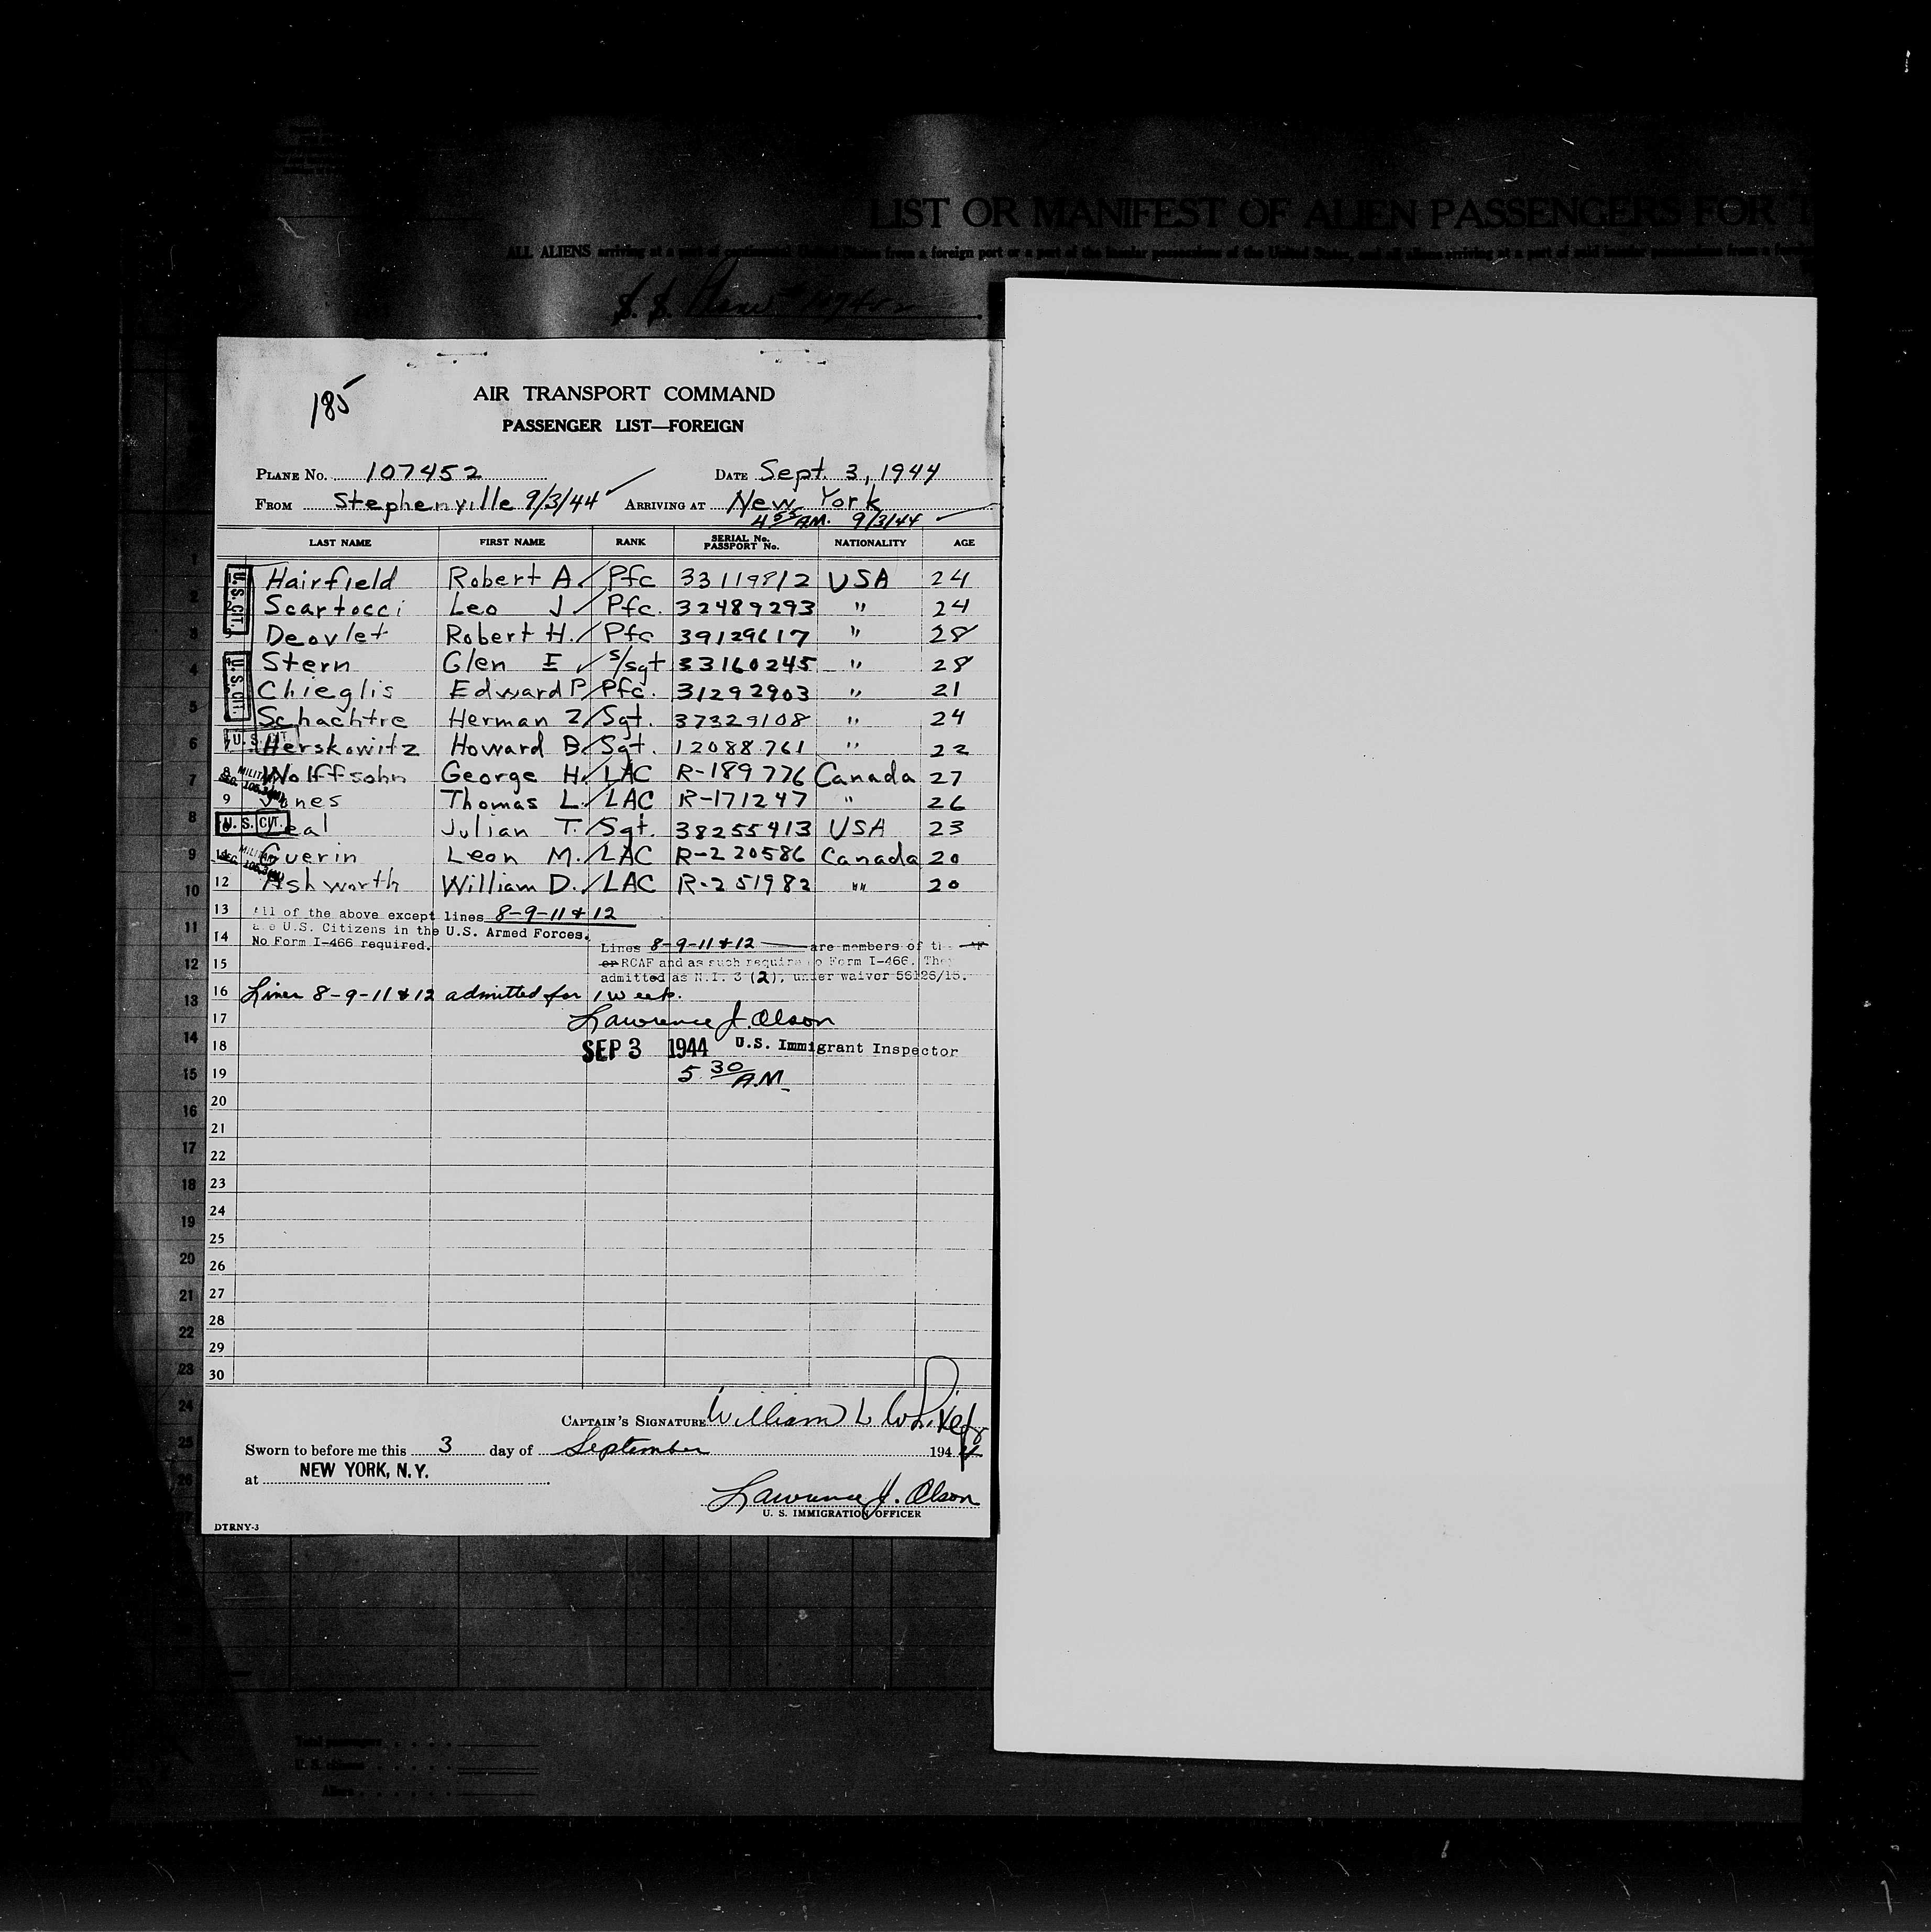 LIST OR MANIFEST OF ALIEN PASSENGERS FOR
ALL ALIENS arriving at a port of continental United States from a foreign port or a port of the insular possessions of the United States, and all aliens arriving at a port of said insular possessions from a
185
AIR TRANSPORT COMMAND
PASSENGER LIST—FOREIGN
PLANE NO. 107452 DATE Sept. 3, 1944
FROM Stephenville 9/3/44 ARRIVING AT New York
4 55 A.M. 9/3/44
LAST NAME FIRST NAME RANK SERIAL No. PASSPORT No. NATIONALITY AGE
U.S.CIT.
Hairfield Robert A. Pfc 33119812 USA 24
Scartocci Leo J Pfc. 32489293 " 24
Deovlet Robert H. Pfc 39129617 " 28
U.S.CIT.
Stern Glen E S/sgt 33160245 " 28
Chieglis Edward P Pfc. 31292903 " 21
Schachtre Herman Z Sgt. 37329108 " 24
U.S.
Herskowitz Howard B. Sgt. 12088761 " 22
8 MILITARY Wolffsohn George H. LAC R-189776 Canada 27
9 Jones Thomas L. LAC R-171247 " 26
U.S.CIT. eal Julian T. Sgt. 38255413 USA 23
11 MILITARY Guerin Leon M. LAC R-220586 Canada 20
12 Ashworth William D. LAC R-251982 "" 20
13 All of the above except lines 8-9-11 & 12
are U.S. Citizens in the U.S. Armed Forces.
14 No Form I-466 required.
Lines 8-9-11 & 12 are members of the
or RCAF and as such require no Form I-466. They
15
admitted as N.I. 3 (2), under waiver 56126/15.
16 Lines 8-9-11 & 12 admitted for 1 week.
17 Lawrence J. Olson
18 SEP 3 1944 U.S. Immigrant Inspector
19 5 30 A.M.
20
21
22
23
24
25
26
27
28
29
30
CAPTAIN'S SIGNATURE William L
Sworn to before me this 3 day of September 1944
at NEW YORK, N.Y.
Lawrence J. Olson
U. S. IMMIGRATION OFFICER
DTRNY-3
1
2
3
4
5
6
7
8
9
10
11
12
13
14
15
16
17
18
19
20
21
22
23
24
25
26
Total passengers
U. S. citizens
Aliens